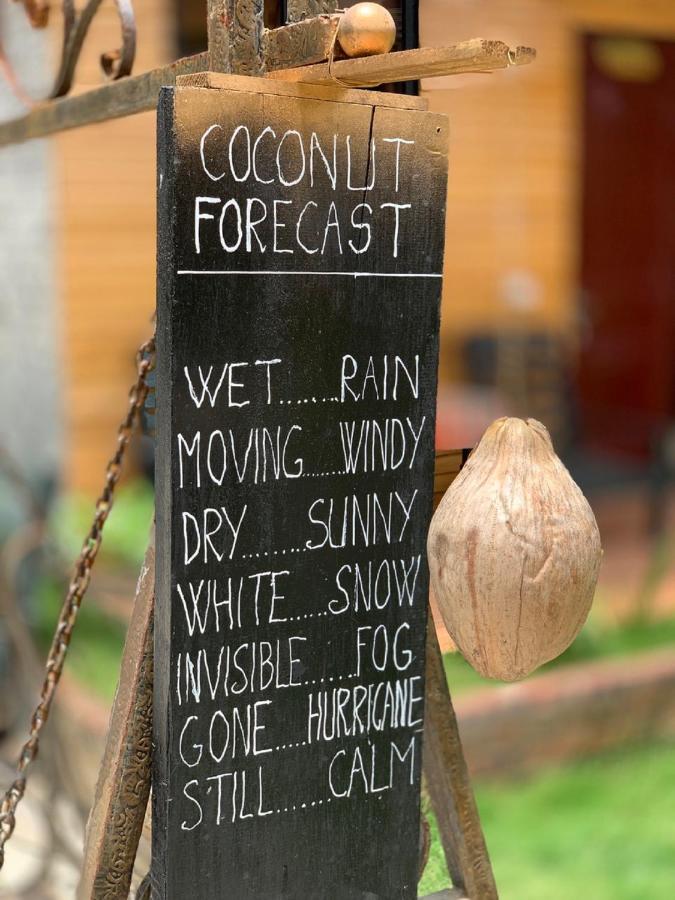 COCONUT
FORECAST
WET........RAIN
MOVING.......WINDY
DRY........SUNNY
WHITE......SNOW
INVISIBLE.......FOG
GONE.....HURRICANE
STILL.......CALM